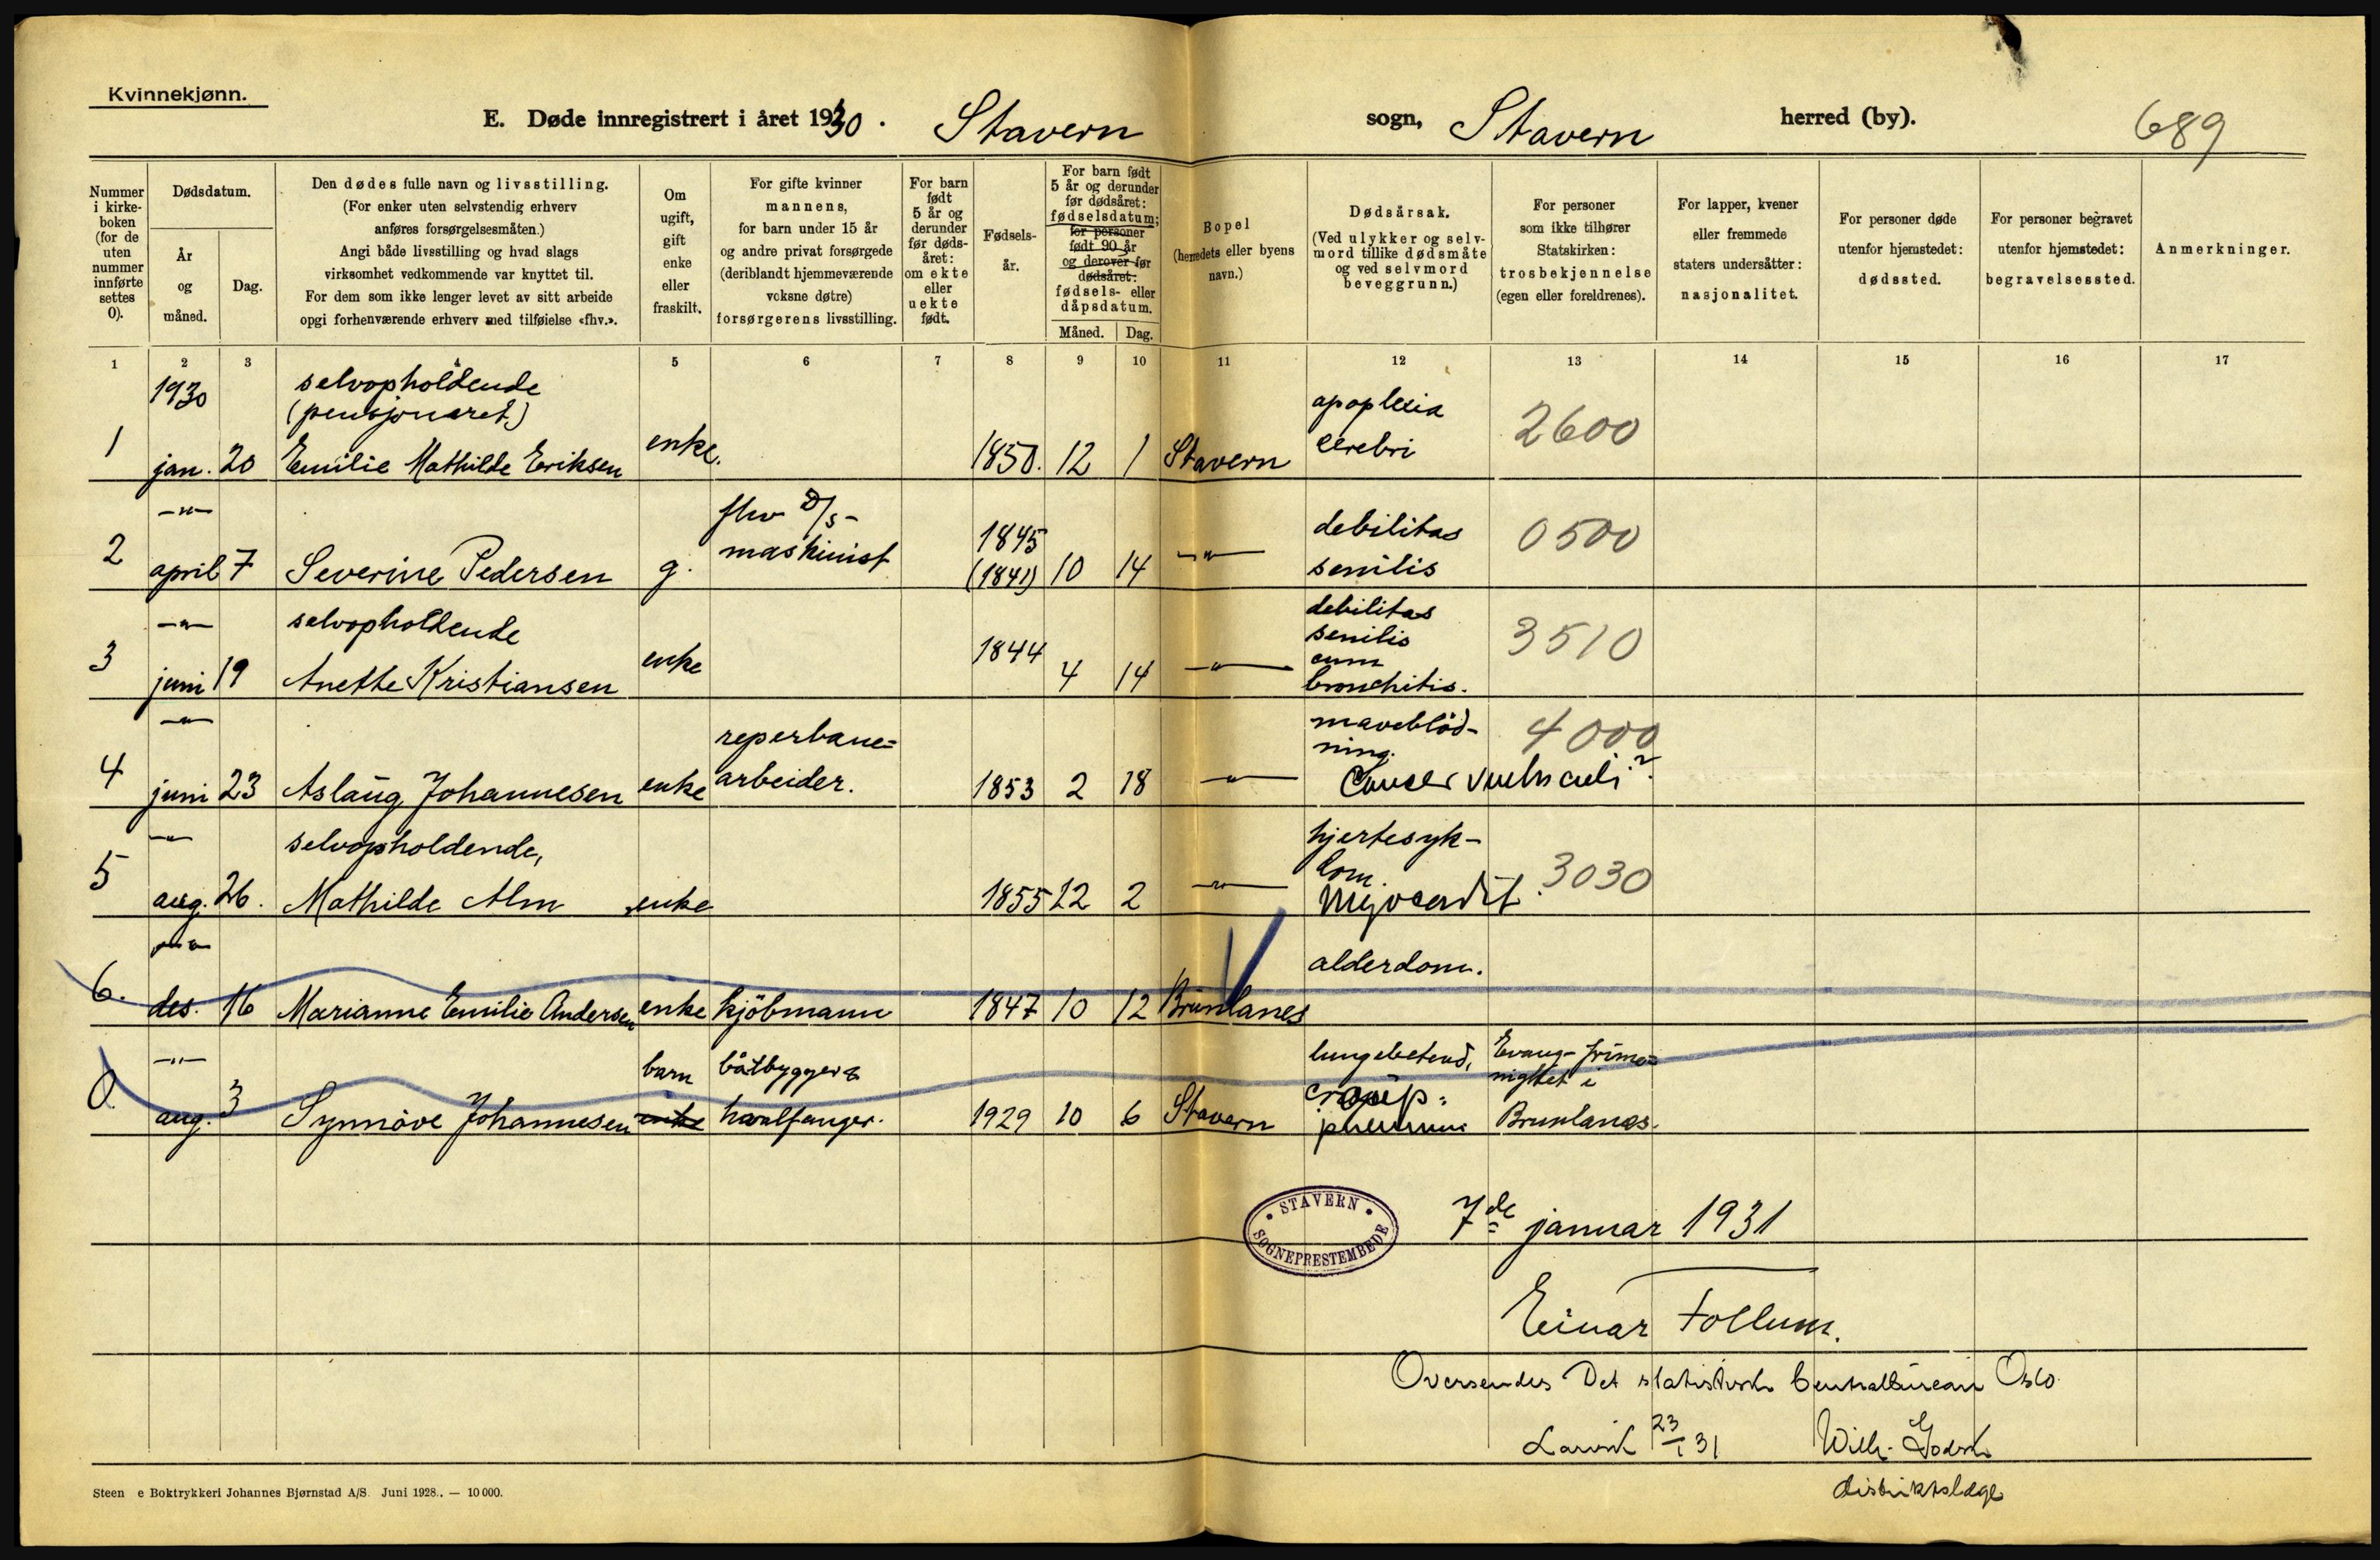 Kvinnekjønn.
E. Døde innregistrert i året 1930. Stavern sogn, Stavern herred (by). 689
Nummer i kirke-boken (for de uten nummer innførte settes 0).
Dødsdatum.
År og måned.
Dag.
Den dødes fulle navn og livsstilling.
(For enker uten selvstendig erhverv
anføres forsørgelsesmåten.)
Angi både livsstilling og hvad slags
virksomhet vedkommende var knyttet til.
For dem som ikke lenger levet av sitt arbeide
opgi forhenværende erhverv med tilføielse «fhv.».
Om ugift, gift enke eller fraskilt.
For gifte kvinner
mannens,
for barn under 15 år
og andre privat forsørgede
(deriblandt hjemmeværende
voksne døtre)
forsørgerens livsstilling.
For barn født 5 år og derunder før døds-året: om ekte eller uekte født.
Fødsels-år.
For barn født
5 år og derunder
før dødsåret:
fødselsdatum;
for personer
født 90 år
og derover før
dødsåret:
fødsels- eller
dåpsdatum.
Måned. Dag.
Bopel
(herredets eller byens
navn.)
Dødsårsak.
(Ved ulykker og selv-
mord tillike dødsmåte
og ved selvmord
beveggrunn.)
For personer
som ikke tilhører
Statskirken:
trosbekjennelse
(egen eller foreldrenes).
For lapper, kvener
eller fremmede
staters undersåtter:
nasjonalitet.
For personer døde
utenfor hjemstedet:
dødssted.
For personer begravet
utenfor hjemstedet:
begravelsessted.
Anmerkninger.
1 2 3 4 5 6 7 8 9 10 11 12 13 14 15 16 17
1930 selvopholdende
(pensjoneret) apoplexia 2600
1 jan. 20 Emilie Mathilde Eriksen enke. 1850. 12 1 Stavern cerebri
—"— fhv D/S- 1845 debilitas 0500
2 april 7 Severine Pedersen g. maskinist (1841) 10 14 —"— senilis
—"— selvopholdende debilitas
senilis 3510
3 juni 19 Anette Kristiansen enke 1844 4 14 —"— cum
bronchitis.
—"— reperbane= maveblöd- 4000
ning.
4 juni 23 Aslaug Johannesen enke arbeider. 1853 2 18 —"— Cancer ventriculi?
—"— selvopholdende, hjertesyk-
dom. 3030
5 aug. 26. Mathilde Alm enke 1855 12 2 —"— Myocardit.
—"— alderdom.
6. des. 16 Marianne Emilie Andersen enke kjöbmann 1847 10 12 Brunlanes
—"— barn båtbygger & lungebetend, Evang- frime=
nighet i
0. aug. 3 Synnöve Johannesen enke hvalfanger. 1929 10 6 Stavern croup= Brunlanes.
pneumoni
STAVERN
SOGNEPRESTEMBEDE
7de januar 1931
Einar Follum.
Oversendes Det statistiske Centralbureau Oslo
Larvik 23/1 31 Wilh.
distriktslæge
Steen e Boktrykkeri Johannes Bjørnstad A/S. Juni 1928. — 10 000.